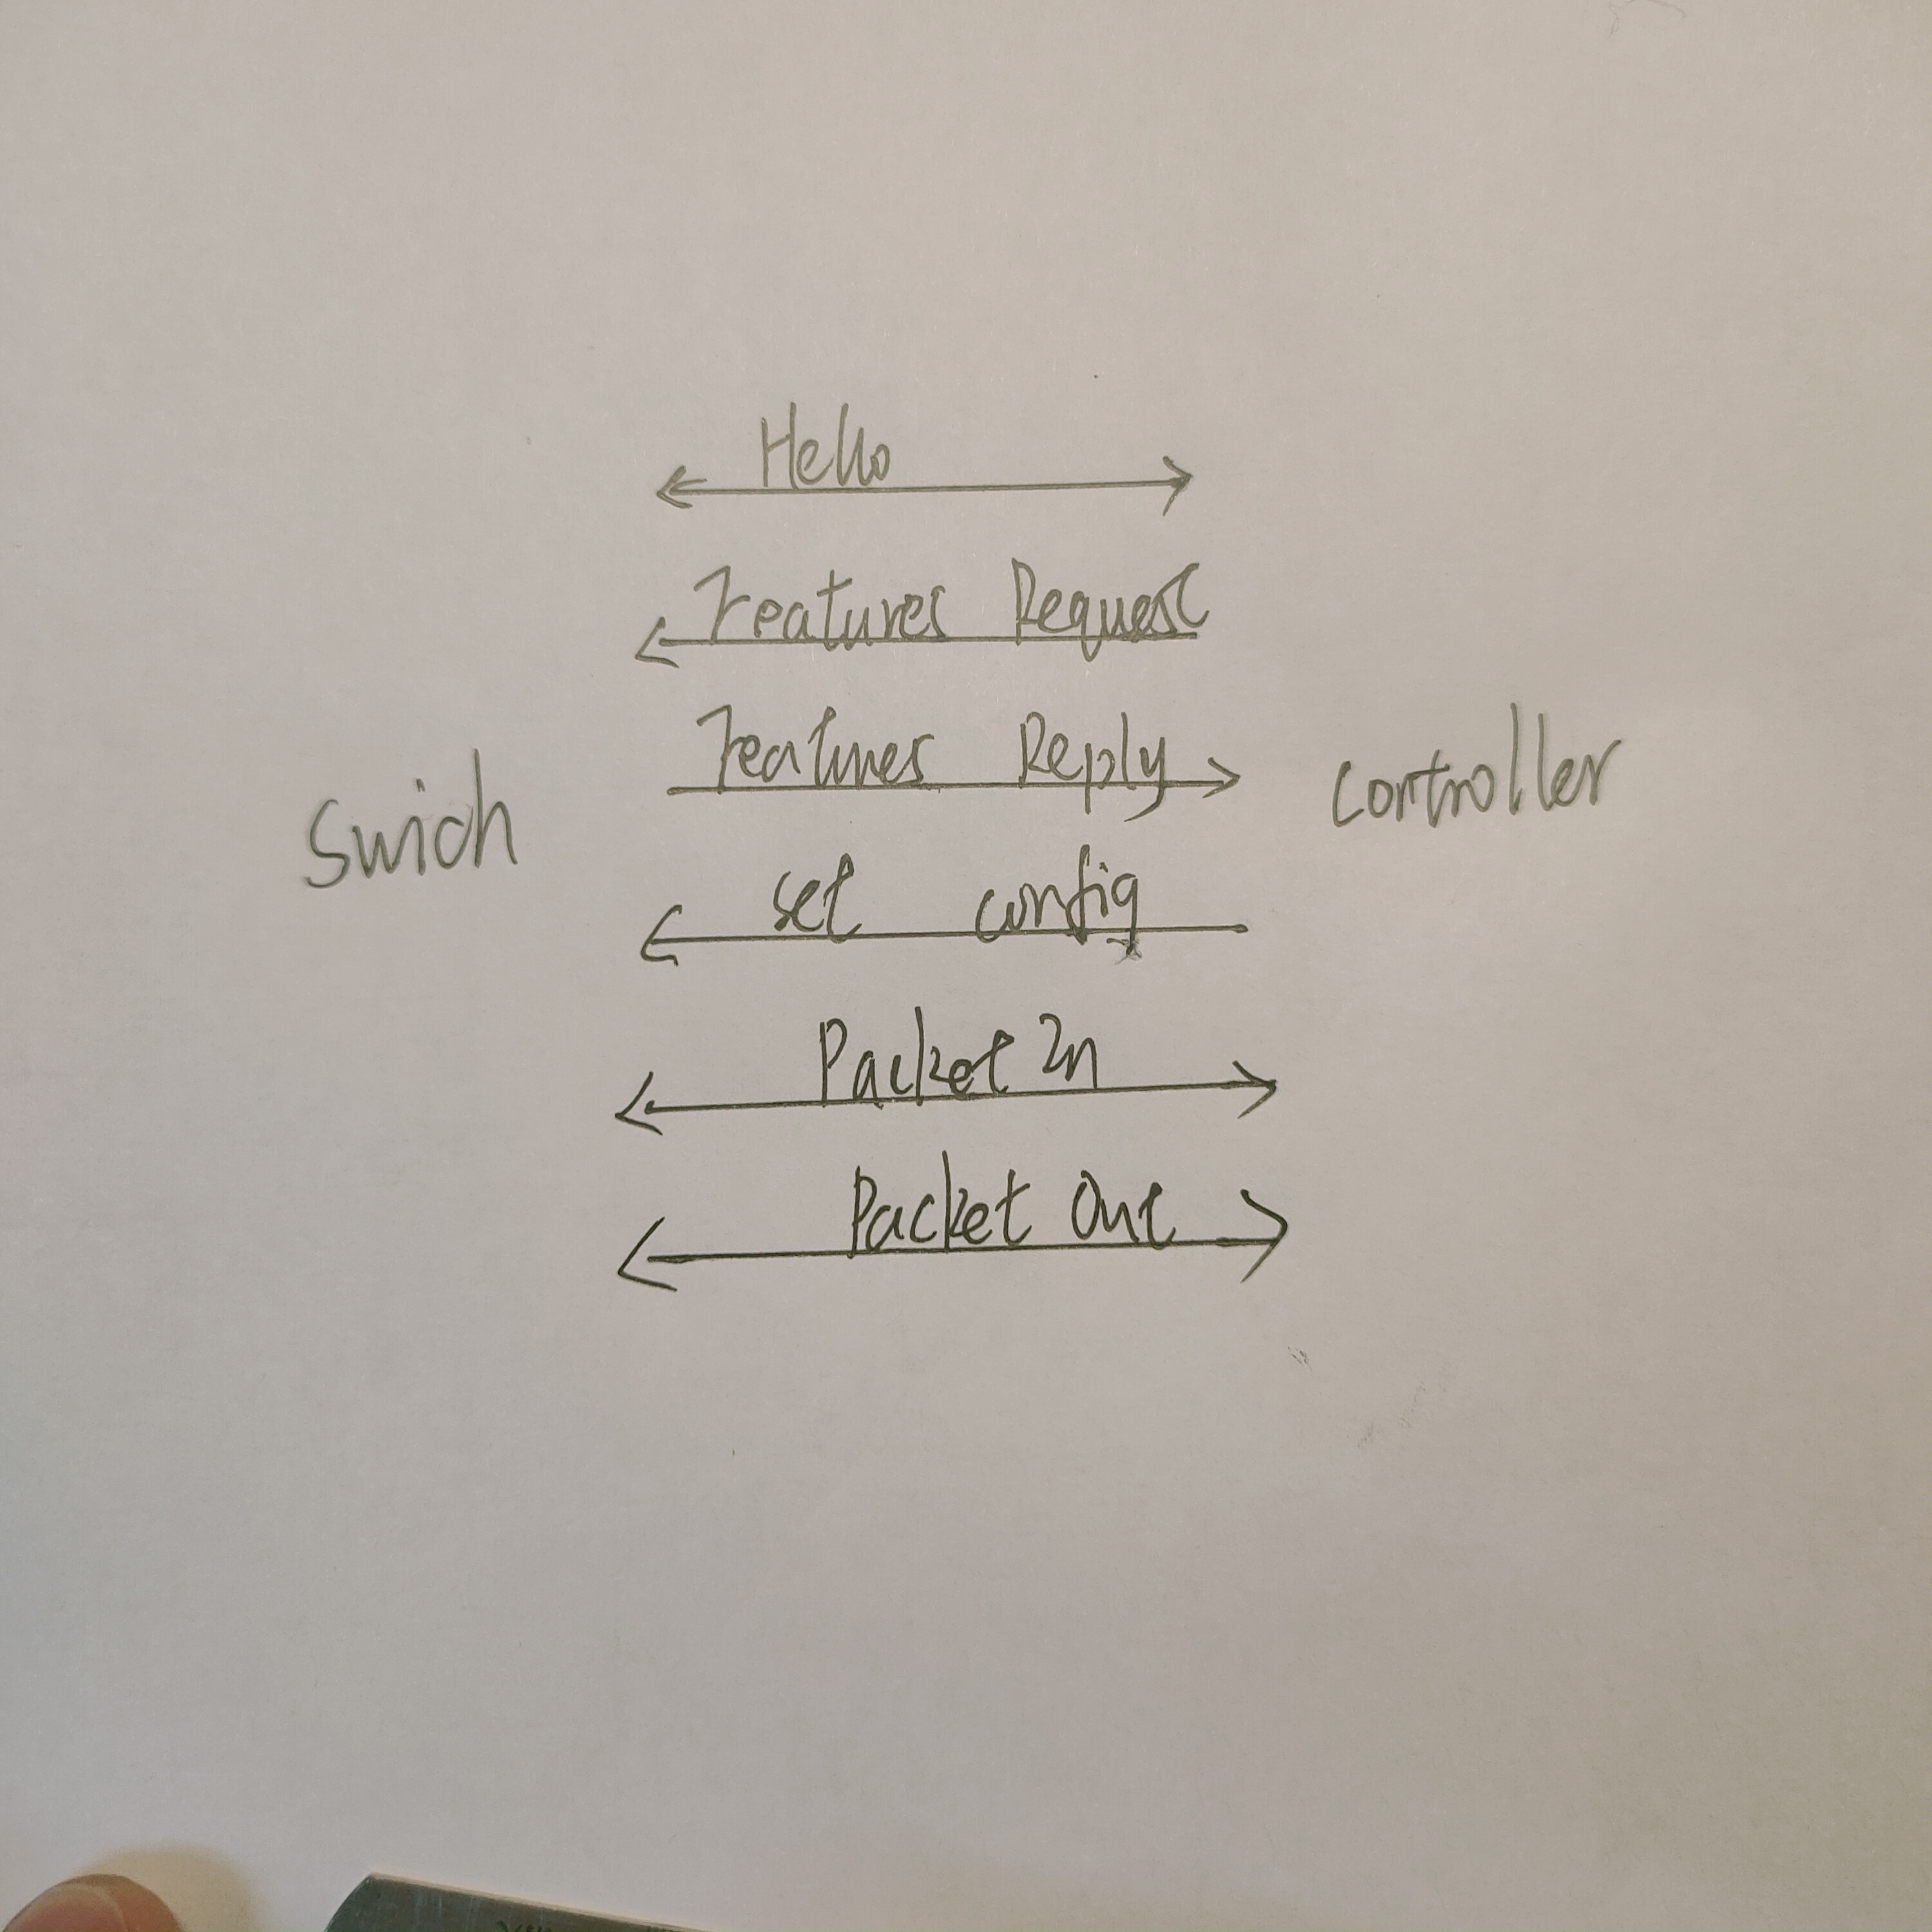 Hello
Features Request
Features Reply
Swich
controller
set config
Packet In
Packet Out